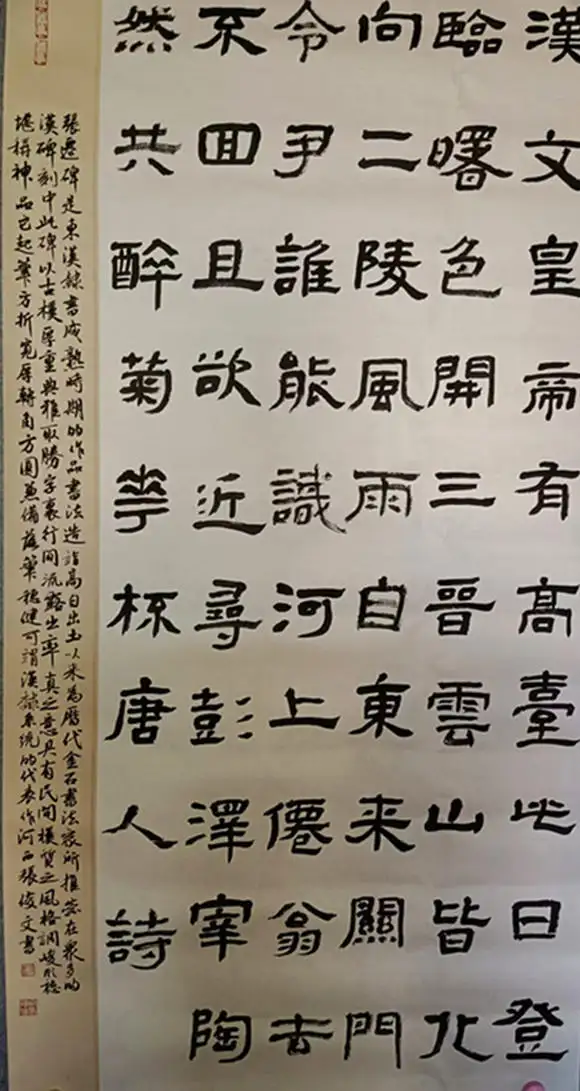 漢文皇帝有高臺此日登
臨曙色開三晉雲山皆北
向二陵風雨自東来關門
令尹誰能識河上僊翁去
不囬且欲近尋彭澤宰陶
然共醉菊華杯唐人詩
張遷碑是東漢隸書成熟時期的作品書法造詣高自出土以来為歷代金石書法家所推崇在眾多的
漢碑刻中此碑以古樸厚重典雅取勝字裏行間流露出率真之意具有民間樸質之風格調峻形穩
堪稱神品它起筆方折寬厚轉角方圓兼備落筆穩健可謂漢隸系統的代表作河西張俊文書